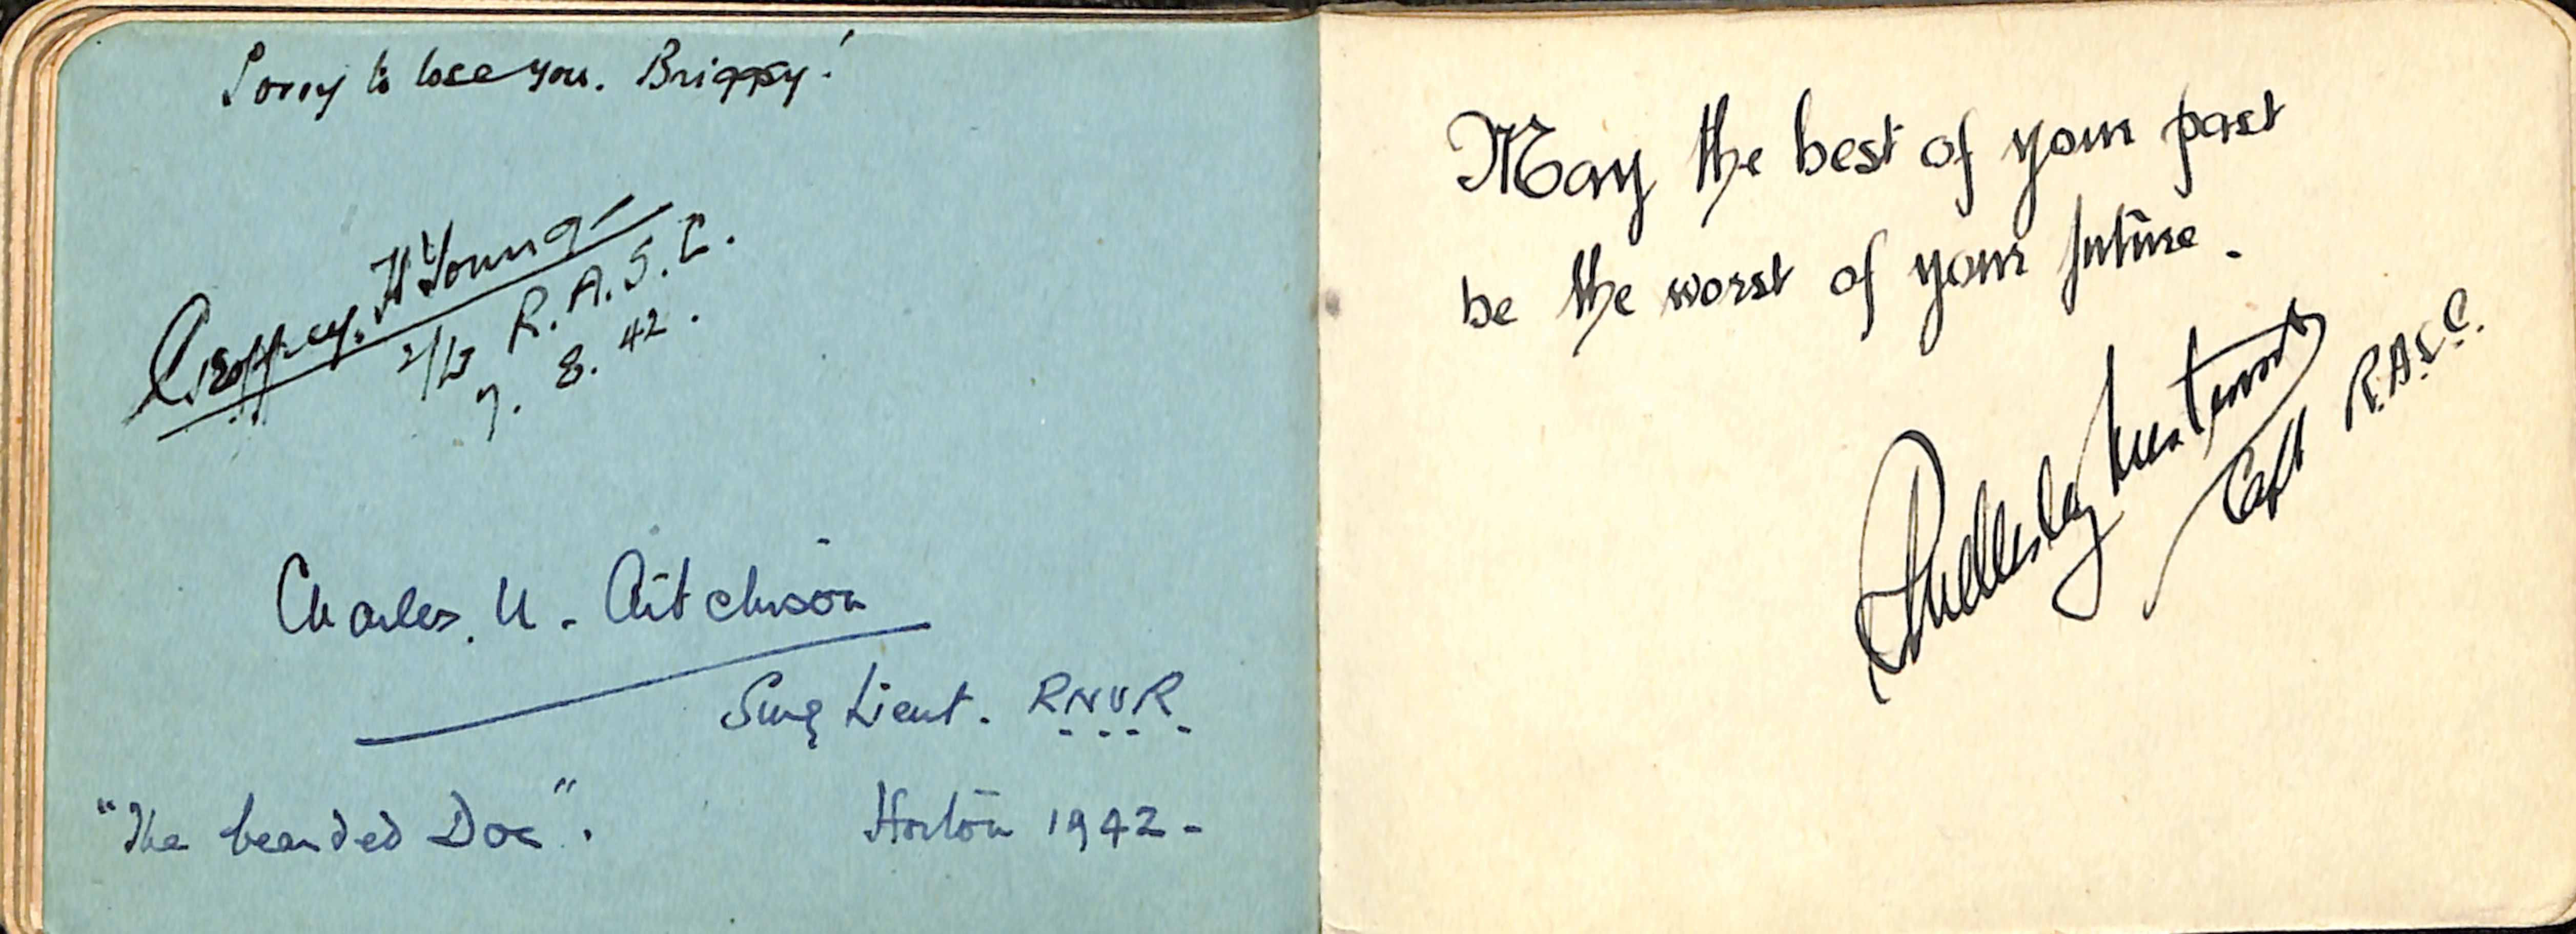 Sorry to lose you. Briggy!
Geoffrey. H Young
R.A.S.C.
7. 8. 42.
Charles. U. Aitchison
Surg Lieut. RNVR.
"The bearded Doc". Horton 1942-
May the best of your past
be the worst of your future.
Capt R.A.S.C.